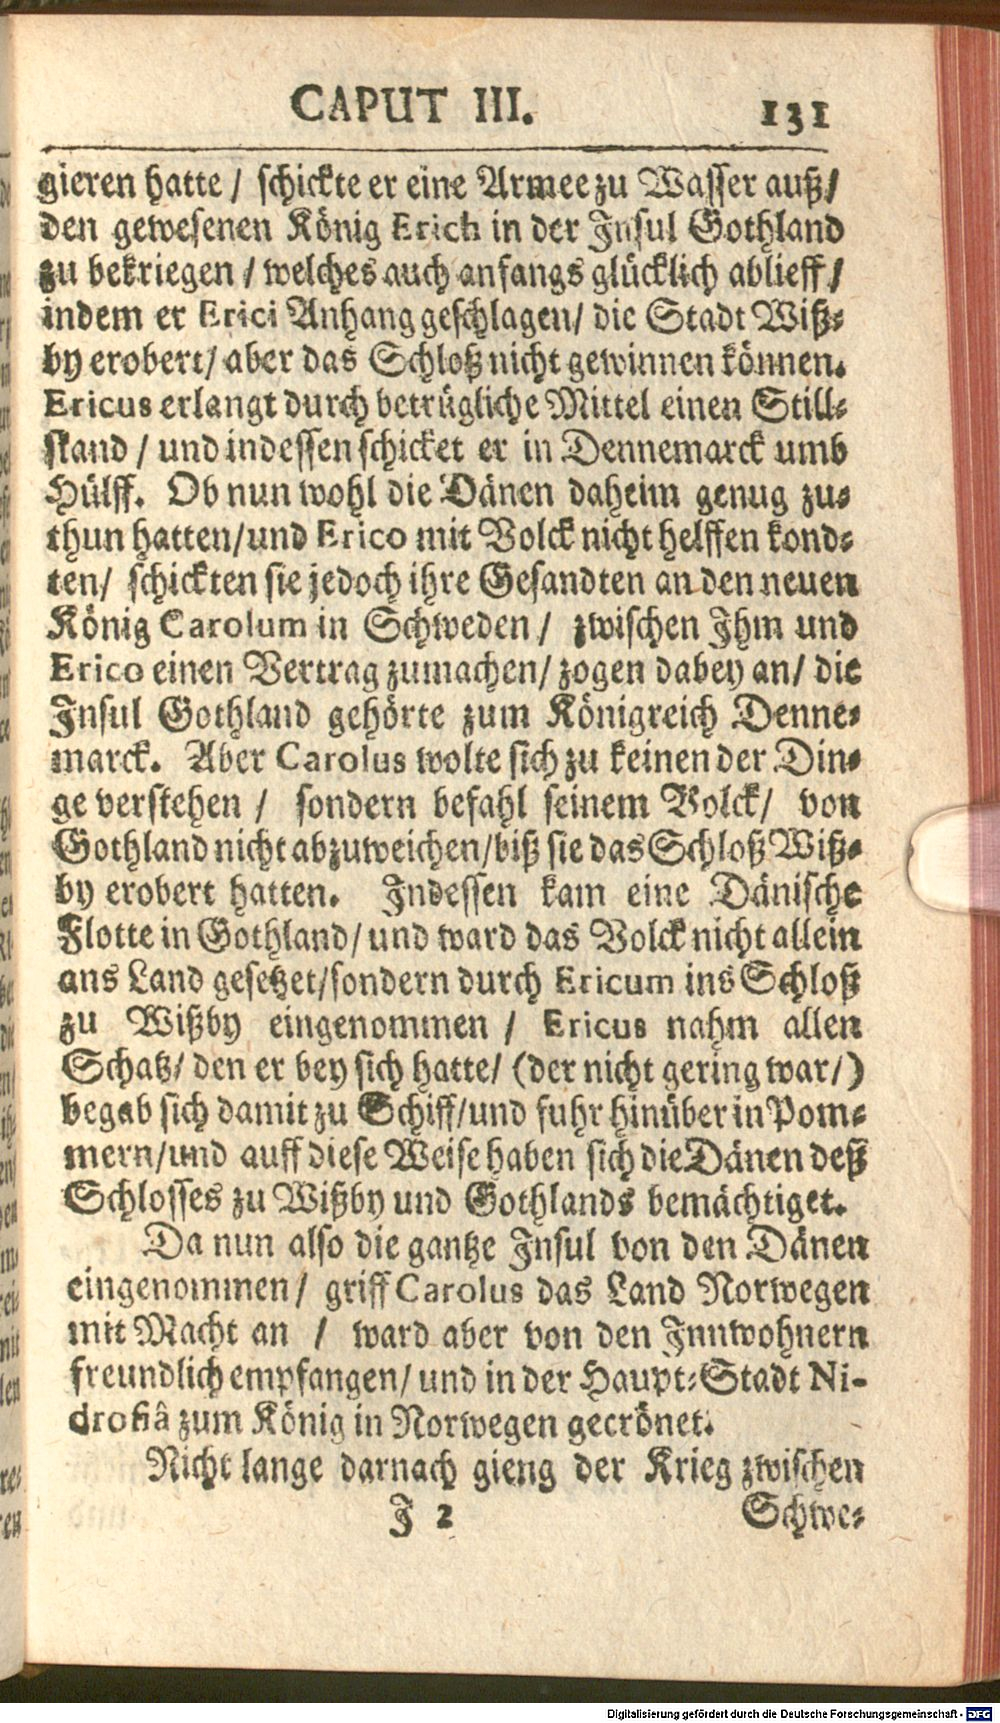 CAPUT III. 131
gieren hatte / schickte er eine Armee zu Wasser auß /
den gewesenen König Erich in der Insul Gothland
zu bekriegen / welches auch anfangs glücklich ablieff /
indem er Erici Anhang geschlagen / die Stadt Wiß-
by erobert / aber das Schloß nicht gewinnen können.
Ericus erlangt durch betrügliche Mittel einen Still-
stand / und indessen schicket er in Dennemarck umb
Hülff. Ob nun wohl die Dänen daheim genug zu-
thun hatten / und Erico mit Volck nicht helffen kond-
ten / schickten sie jedoch ihre Gesandten an den neuen
König Carolum in Schweden / zwischen Ihm und
Erico einen Vertrag zumachen / zogen dabey an / die
Insul Gothland gehörte zum Königreich Denne-
marck. Aber Carolus wolte sich zu keinen der Din-
ge verstehen / sondern befahl seinem Volck / von
Gothland nicht abzuweichen / biß sie das Schloß Wiß-
by erobert hatten. Indessen kam eine Dänische
Flotte in Gothland / und ward das Volck nicht allein
ans Land gesetzet / sondern durch Ericum ins Schloß
zu Wißby eingenommen / Ericus nahm allen
Schatz / den er bey sich hatte / (der nicht gering war /)
begab sich damit zu Schiff / und fuhr hinüber in Pom-
mern / und auff diese Weise haben sich die Dänen deß
Schlosses zu Wißby und Gothlands bemächtiget.
Da nun also die gantze Insul von den Dänen
eingenommen / griff Carolus das Land Norwegen
mit Macht an / ward aber von den Innwohnern
freundlich empfangen / und in der Haupt-Stadt Ni-
drosiâ zum König in Norwegen gecrönet.
Nicht lange darnach gieng der Krieg zwischen
J 2 Schwe-
Digitalisierung gefördert durch die Deutsche Forschungsgemeinschaft - DFG